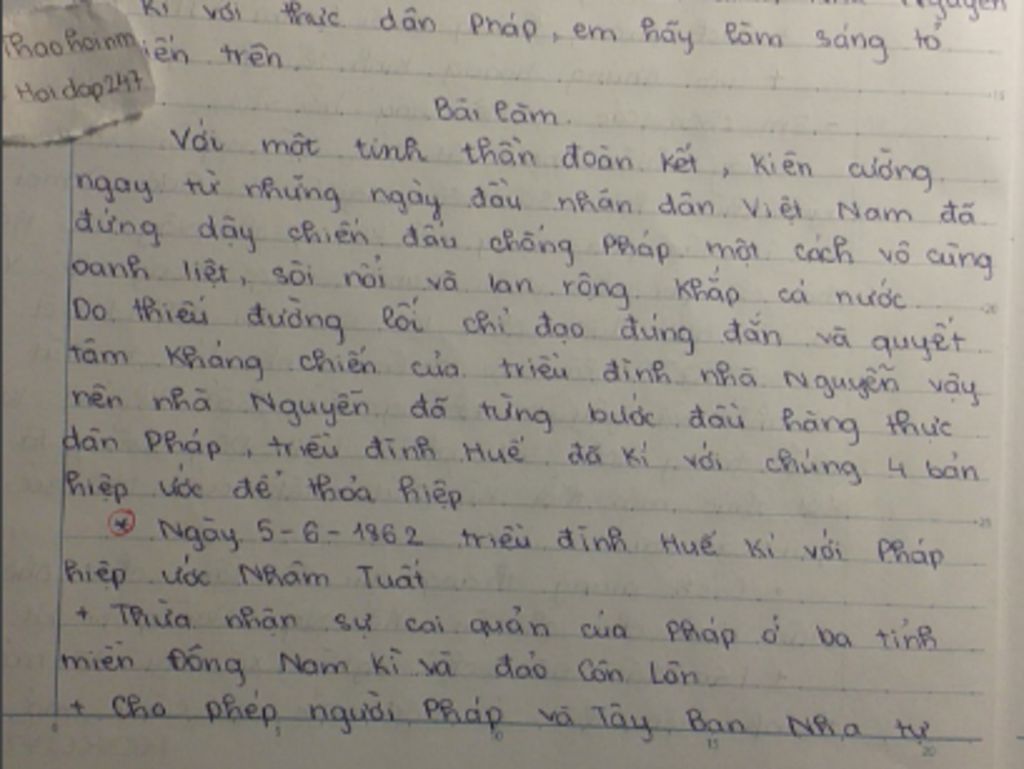 Nguyễn
kí với thực dân Pháp, em hãy làm sáng tỏ
Thaohoinm
iến trên.
Hoidap247
Bài làm.
Với một tinh thần đoàn kết, kiên cường
ngay từ những ngày đầu nhân dân Việt Nam đã
đứng dậy chiến đấu chống Pháp một cách vô cùng
oanh liệt, sôi nổi và lan rộng khắp cả nước.
Do thiếu đường lối chỉ đạo đúng đắn và quyết
tâm kháng chiến của triều đình nhà Nguyễn vậy
nên nhà Nguyễn đã từng bước đầu hàng thực
dân Pháp, triều đình Huế đã kí với chúng 4 bản
hiệp ước để thỏa hiệp.
* Ngày 5-6-1862 triều đình Huế kí với Pháp
hiệp ước Nhâm Tuất
+ Thừa nhận sự cai quản của Pháp ở ba tỉnh
miền Đông Nam Kì và đảo Côn Lôn
+ Cho phép người Pháp và Tây Ban Nha tự